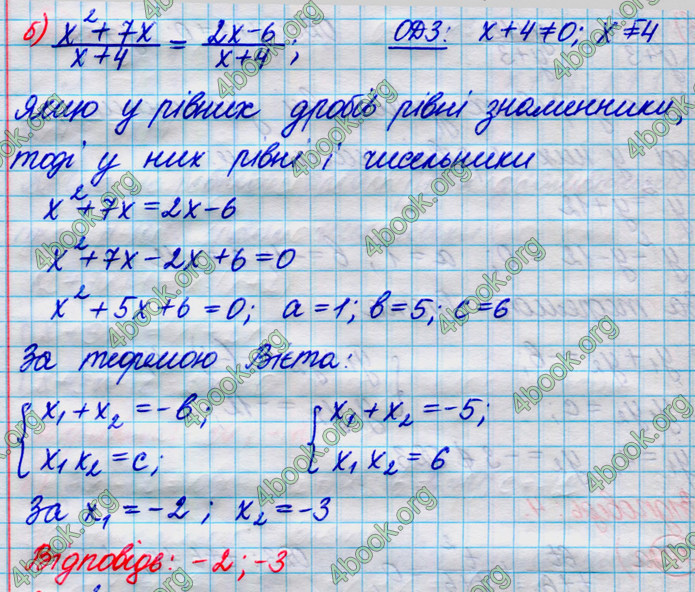 б) (x²+7x)/(x+4) = (2x-6)/(x+4); ОДЗ: x+4≠0; x≠4
Якщо у рівних дробів рівні знаменники,
тоді у них рівні і чисельники
x²+7x=2x-6
x²+7x-2x+6=0
x²+5x+6=0; a=1; b=5; c=6
За теоремою Вієта:
{x₁+x₂=-b; {x₁+x₂=-5;
{x₁x₂=c; {x₁x₂=6
За x₁=-2; x₂=-3
Відповідь: -2;-3
4book.org